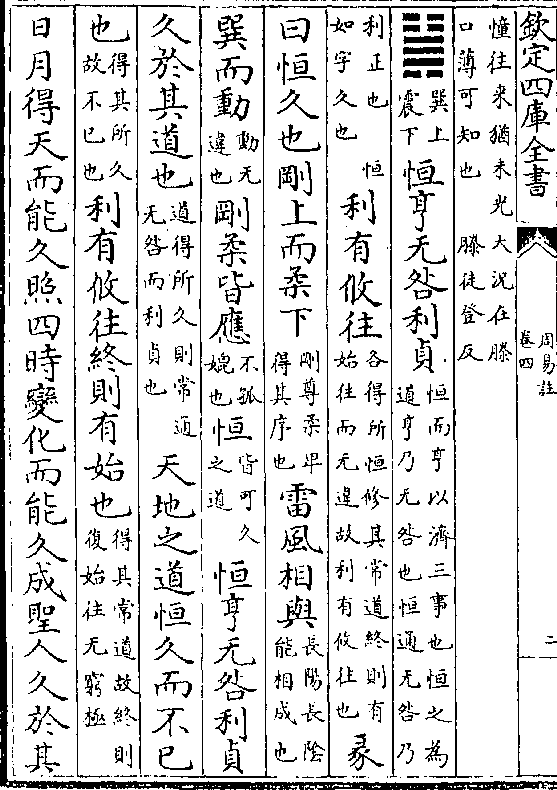 欽定四庫全書 周易註 卷四 二
憧往來猶未光大況在滕
口薄可知也 滕徒登反
䷟ 巽上 震下 恒亨无咎利貞 恒而亨以濟三事也恒之為 道亨乃无咎也恒通无咎乃
利正也 恒 如字久也 利有攸往 各得所恒修其常道終則有 始往而无違故利有攸往也 彖
曰恒久也剛上而柔下 剛尊柔卑 得其序也 雷風相與 長陽長陰 能相成也
巽而動 動无 違也 剛柔皆應 不孤 媲也 恒 皆可久 之道 恒亨无咎利貞
久於其道也 道得所久則常通 无咎而利貞也 天地之道恒久而不已
也 得其所久 故不已也 利有攸往終則有始也 得其常道故終則 復始往无窮極
日月得天而能久照四時變化而能久成聖人久於其